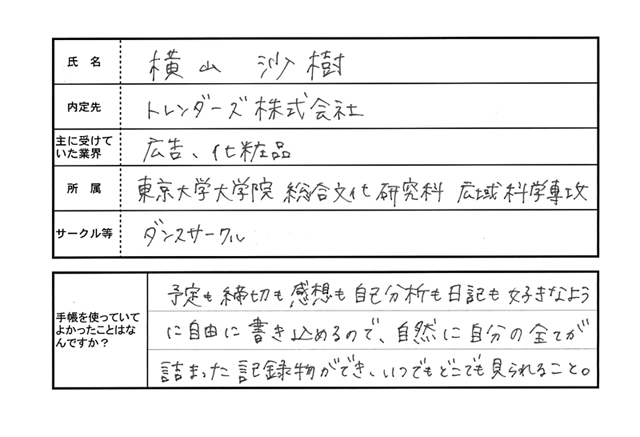 氏名 横山 沙樹
内定先 トレンダーズ株式会社
主に受けて
いた業界 広告、化粧品
所属 東京大学大学院 総合文化研究科 広域科学専攻
サークル等 ダンスサークル
手帳を使っていて
よかったことはな
んですか？
予定も締切も感想も自己分析も日記も好きなよう
に自由に書き込めるので、自然に自分の全てが
詰まった記録物ができ、いつでもどこでも見られること。